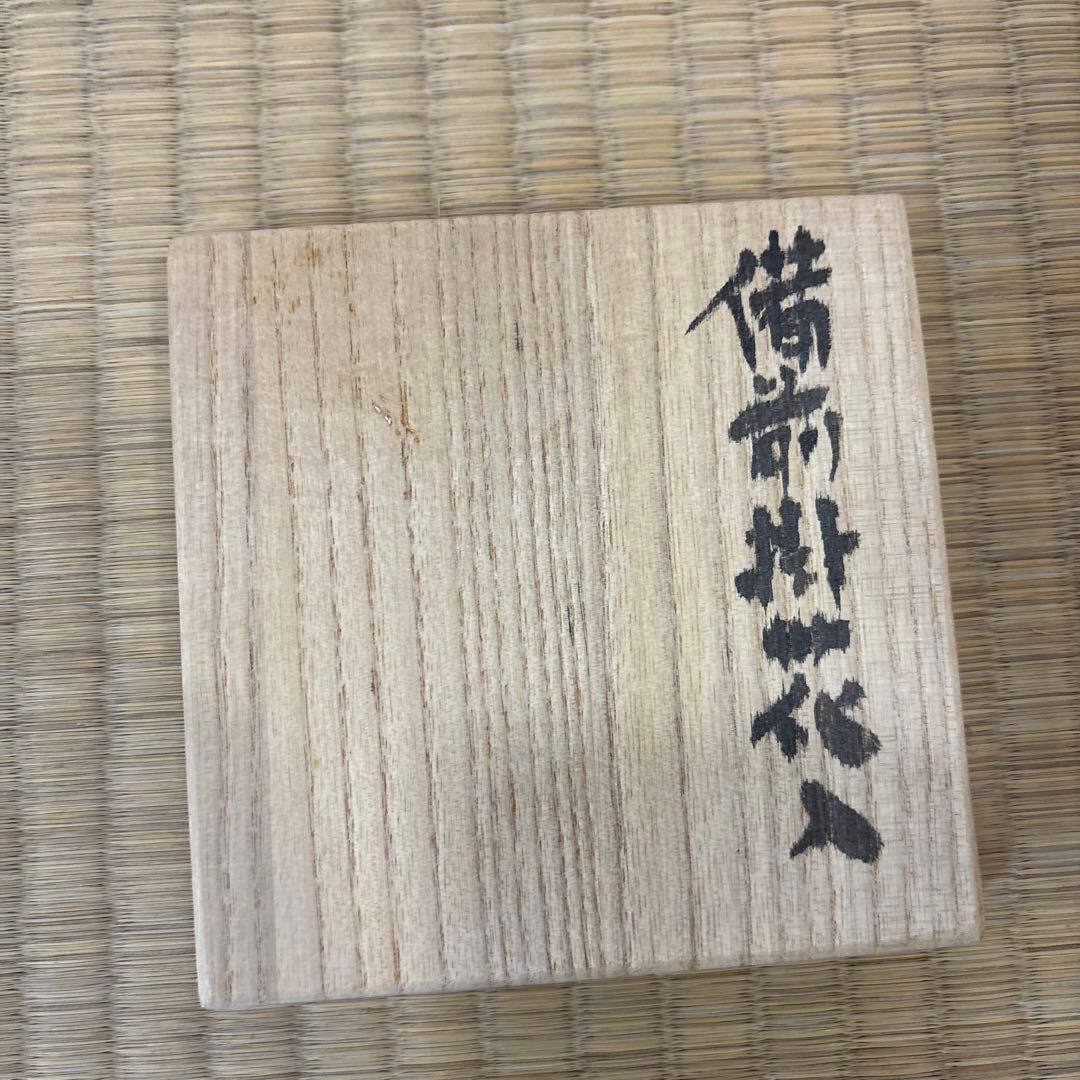 備前掛花入